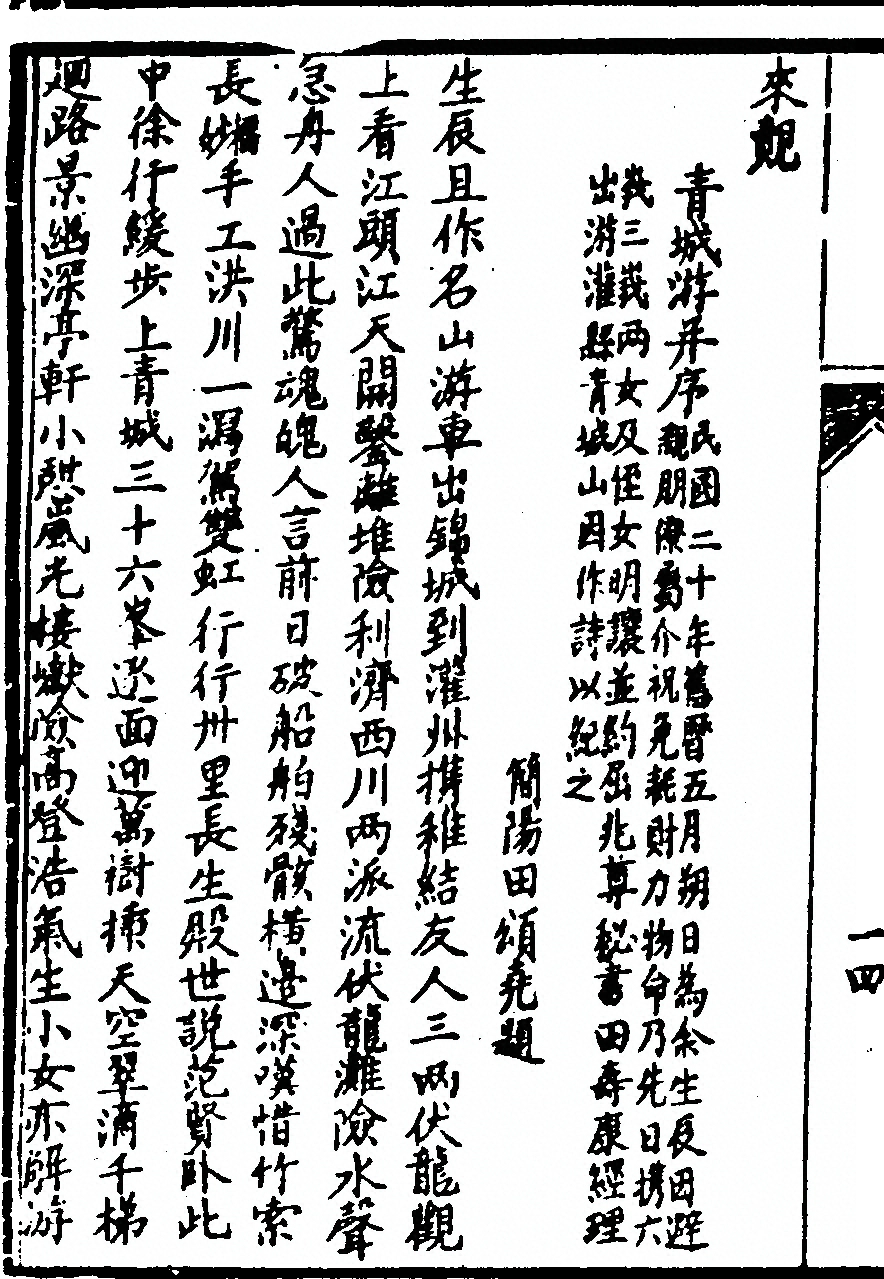 來觀
青城游并序
民國二十年舊曆五月朔日為余生辰因避
親朋僚屬介祝免耗財力物命乃先日携六
歲三歲两女及侄女明讓並約屈兆尊秘書田壽康經理
出游灌縣青城山因作詩以紀之
簡陽田頌堯題
生辰且作名山游車出錦城到灌州携稚結友人三两伏龍觀
上看江頭江天開鑿離堆險利濟西川两派流伏龍灘險水聲
急舟人過此驚魂魄人言前日破船舶殘骸橫邊深嘆惜竹索
長橋妙手工洪川一瀉駕雙虹行行卅里長生殿世説范賢卧此
中徐行緩步上青城三十六峯逐面迎萬樹摭天空翠滴千梯
廻路景幽深亭軒小憩嵐光接巘險高登浩氣生小女亦解游
一四